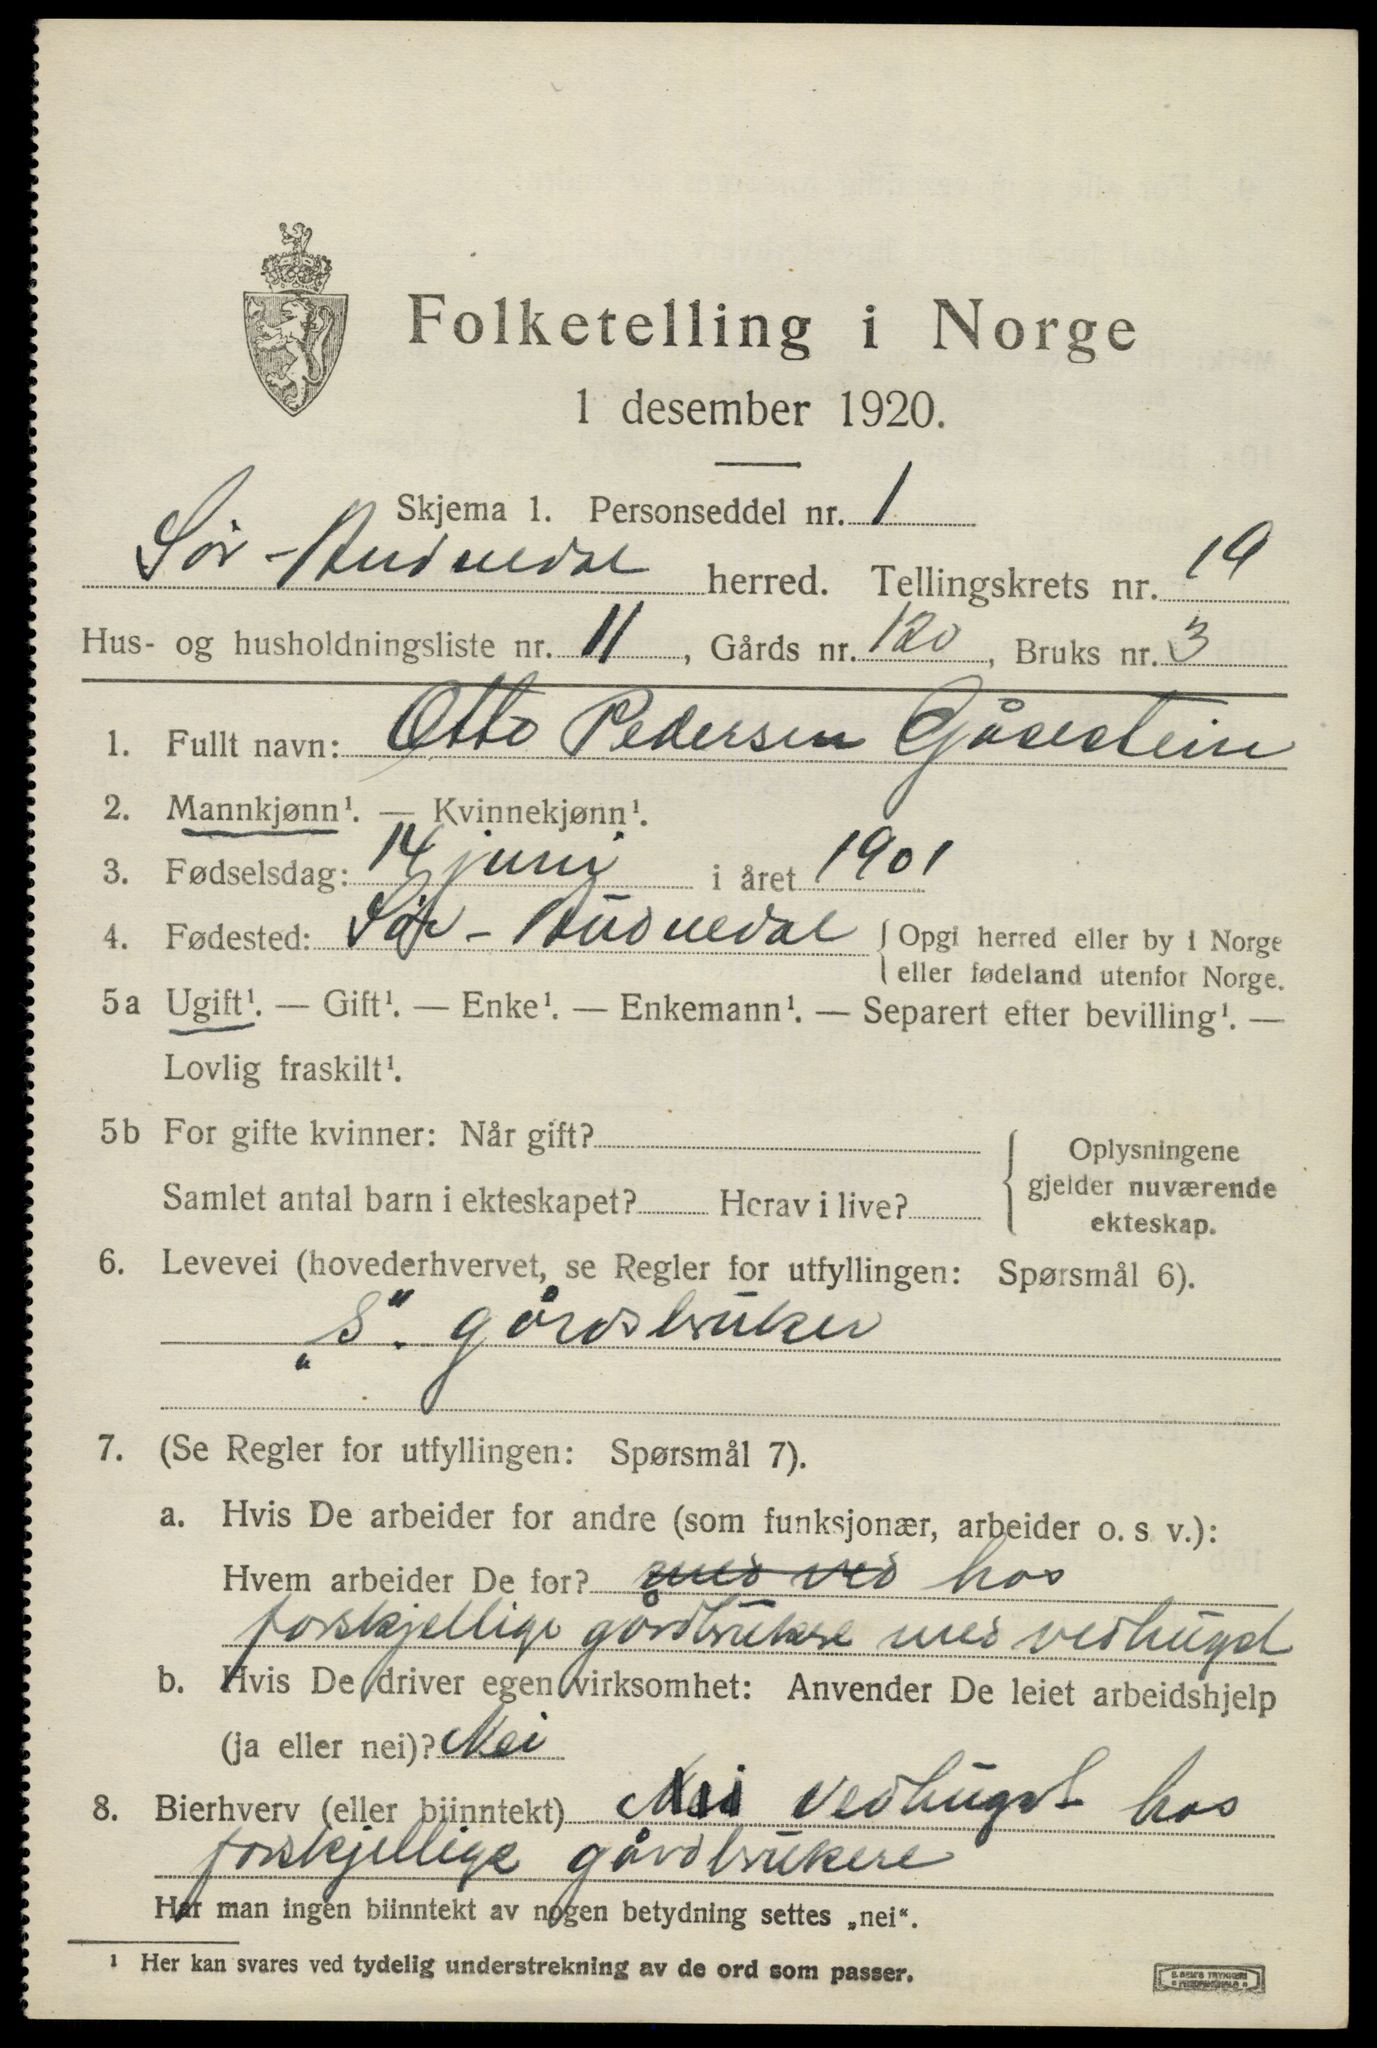 Folketelling i Norge
1 desember 1920.
Skjema 1. Personseddel nr. 1
Sør-Audnedal herred. Tellingskrets nr. 19
Hus- og husholdningsliste nr. 11, Gårds nr. 120, Bruks nr. 3
1. Fullt navn: Otto Pedersen Gåsestein
2. Mannkjønn¹. — Kvinnekjønn¹.
3. Fødselsdag: 14 juni i året 1901
4. Fødested: Sør-Audnedal { Opgi herred eller by i Norge
eller fødeland utenfor Norge.
5a Ugift¹. — Gift¹. — Enke¹. — Enkemann¹. — Separert efter bevilling¹. —
Lovlig fraskilt¹.
5b For gifte kvinner: Når gift?
Samlet antal barn i ekteskapet? Herav i live?
Oplysningene
gjelder nuværende
ekteskap.
6. Levevei (hovederhvervet, se Regler for utfyllingen: Spørsmål 6).
„S“. gårdsbruker
7. (Se Regler for utfyllingen: Spørsmål 7).
a. Hvis De arbeider for andre (som funksjonær, arbeider o. s v.):
Hvem arbeider De for? med ved hos
forskjellige gårdbrukere med vedhugst
b. Hvis De driver egen virksomhet: Anvender De leiet arbeidshjelp
(ja eller nei)? Nei
8. Bierhverv (eller biinntekt) Nei vedhugst hos
forskjellige gårdbrukere
Har man ingen biinntekt av nogen betydning settes „nei“.
¹ Her kan svares ved tydelig understrekning av de ord som passer.